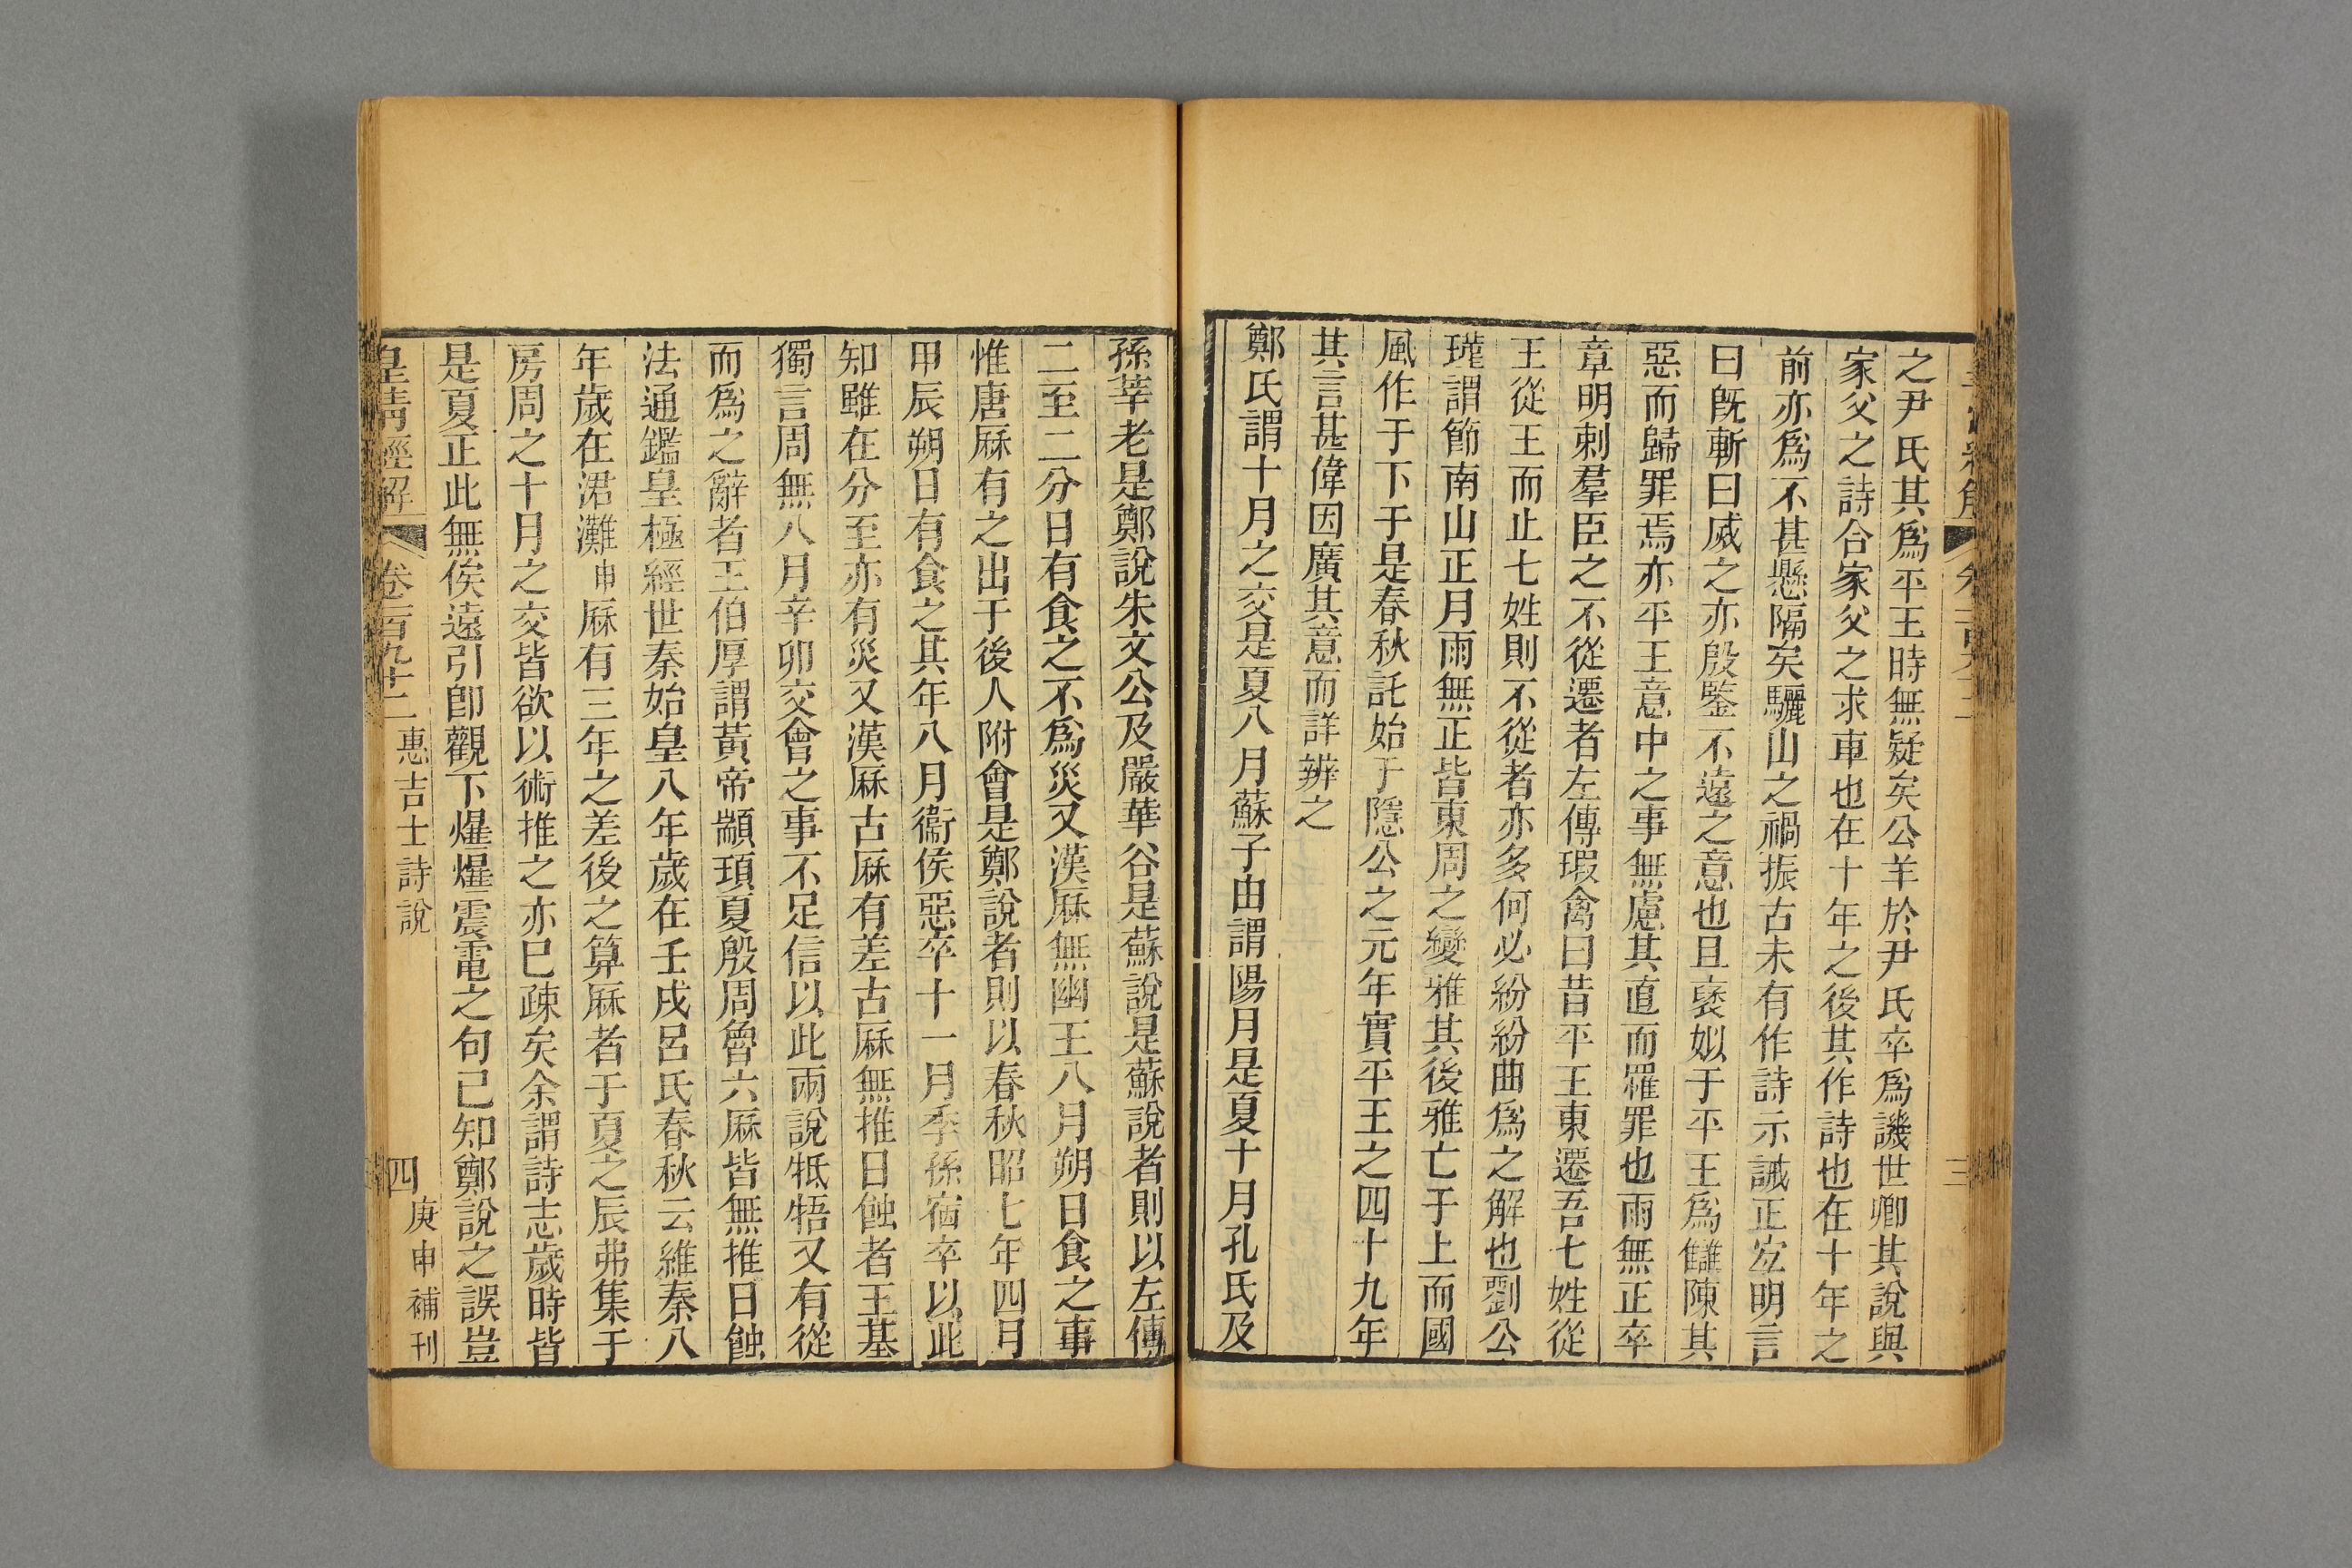 之尹氏其爲平王時無疑矣公羊於尹氏卒爲譏世卿其說與
家父之詩合家父之求車也在十年之後其作詩也在十年之
前亦爲不甚懸隔矣驪山之禍振古未有作詩示誡正宜明言
曰旣斬曰烕之亦殷鑒不遠之意也且襃姒于平王爲讎陳其
惡而歸罪焉亦平王意中之事無慮其直而罹罪也雨無正卒
章明刺羣臣之不從遷者左傳瑕禽曰昔平王東遷吾七姓從
王從王而止七姓則不從者亦多何必紛紛曲爲之解也劉公
瓘謂節南山正月雨無正皆東周之變雅其後雅亡于上而國
風作于下于是春秋託始于隱公之元年實平王之四十九年
其言甚偉因廣其意而詳辨之
鄭氏謂十月之交是夏八月蘇子由謂陽月是夏十月孔氏及
三
孫莘老是鄭說朱文公及嚴華谷是蘇說是蘇說者則以左傳
二至二分日有食之不爲災又漢厤無幽王八月朔日食之事
惟唐厤有之出于後人附會是鄭說者則以春秋昭七年四月
甲辰朔日有食之其年八月衞侯惡卒十一月季孫宿卒以此
知雖在分至亦有災又漢厤古厤有差古厤無推日蝕者王基
獨言周無八月辛卯交會之事不足信以此兩說牴牾又有從
而爲之辭者王伯厚謂黃帝顓頊夏殷周魯六厤皆無推日蝕
法通鑑皇極經世秦始皇八年歲在壬戌呂氏春秋云維秦八
年歲在涒灘申厤有三年之差後之算厤者于夏之辰弗集于
房周之十月之交皆欲以術推之亦已疎矣余謂詩志歲時皆
是夏正此無俟遠引卽觀下爗爗震電之句已知鄭說之誤豈
皇清經解 卷一百九十二 惠吉士詩說 四 庚申補刊